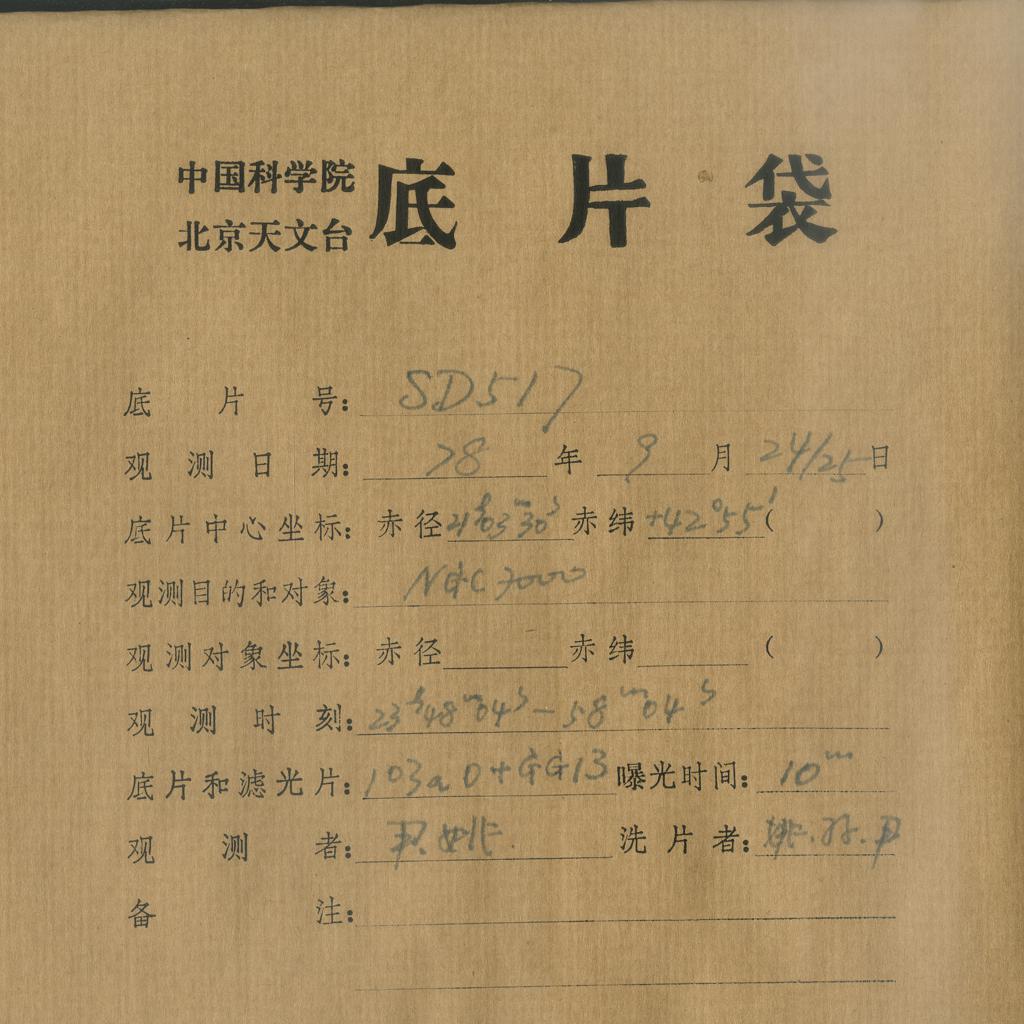 中国科学院
北京天文台
底片袋
底片号：SD517
观测日期：78年9月24/25日
底片中心坐标：赤径 03ᵐ30ˢ 赤纬+42°55′( )
观测目的和对象：NGC7000
观测对象坐标：赤径 赤纬 ( )
观测时刻：23ʰ48ᵐ04ˢ-58ᵐ04ˢ
底片和滤光片：103aO+GG13 曝光时间：10ᵐ
观测者：尹.姚. 洗片者：姚.孙.尹
备注：